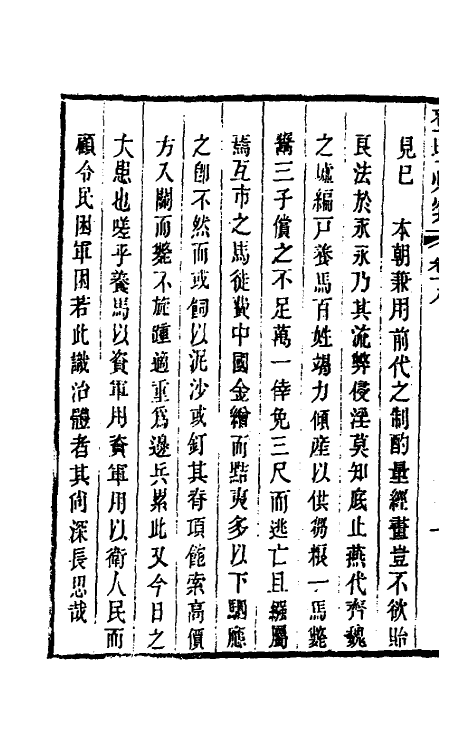 見巳　本朝兼用前代之制酌量經畫豈不欲貽
良法於永永乃其流弊侵淫莫知底止燕代齊魏
之墟編戶養馬百姓竭力傾産以供芻粮一馬斃
鬻三子償之不足萬一倖免三尺而逃亡且繦屬
焉互市之馬徒費中國金繒而黠夷多以下駟應
之卽不然而或飼以泥沙或釘其脊項飽索高價
方入關而斃不旋踵適重爲邊兵累此又今日之
大患也嗟乎養馬以資軍用資軍用以衛人民而
顧令民困軍困若此識治體者其尙深長思哉